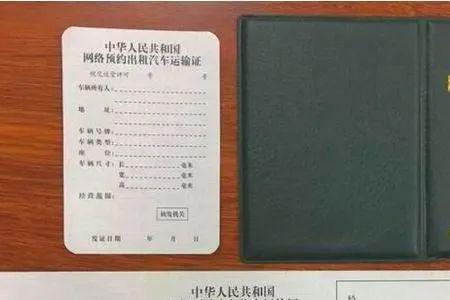 中华人民共和国
网络预约出租汽车运输证
号 号
车辆所有人：
地 址：
车辆号牌：
车辆类型：
座 位：
车辆尺寸：长 毫米
宽 毫米
高 毫米
经营范围：
核发机关
发证日期 年 月 日
中华人民共和国
经